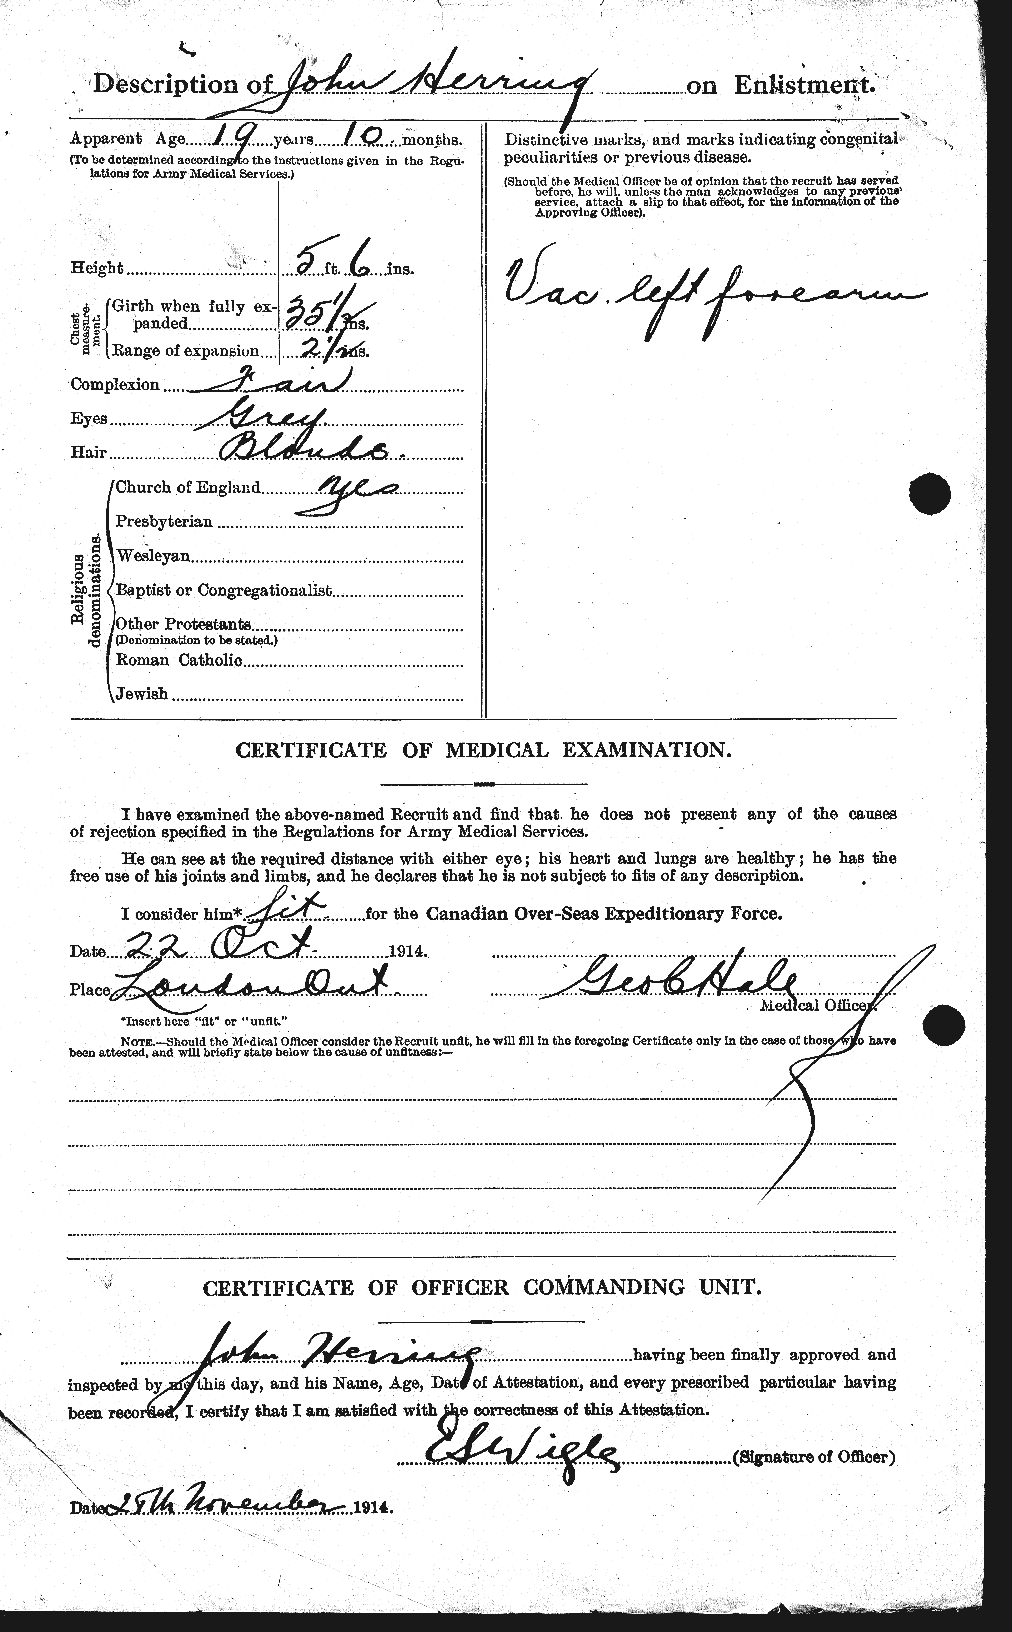 Description of John Herring on Enlistment.
Apparent Age 19 years 10 months.
(To be determined according to the instructions given in the Regu-
lations for Army Medical Services.)
Height 5 ft. 6 ins.
Chest measure-ment.
Girth when fully ex-
panded 35 1/2 ins.
Range of expansion 2 1/2 ins.
Complexion Fair
Eyes Grey
Hair Blonde.
Religious denominations.
Church of England yes
Presbyterian
Wesleyan
Baptist or Congregationalist
Other Protestants
(Denomination to be stated.)
Roman Catholic
Jewish
Distinctive marks, and marks indicating congenital
peculiarities or previous disease.
(Should the Medical Officer be of opinion that the recruit has served
before, he will, unless the man acknowledges to any previous
service, attach a slip to that effect, for the information of the
Approving Officer).
Vac. left forearm
CERTIFICATE OF MEDICAL EXAMINATION.
I have examined the above-named Recruit and find that he does not present any of the causes
of rejection specified in the Regulations for Army Medical Services.
He can see at the required distance with either eye; his heart and lungs are healthy; he has the
free use of his joints and limbs, and he declares that he is not subject to fits of any description.
I consider him* fit for the Canadian Over-Seas Expeditionary Force.
Date 22 Oct 1914.
Place London Ont.
Geo C Hale
Medical Officer.
*Insert here "fit" or "unfit."
NOTE.—Should the Medical Officer consider the Recruit unfit, he will fill in the foregoing Certificate only in the case of those who have
been attested, and will briefly state below the cause of unfitness:—
CERTIFICATE OF OFFICER COMMANDING UNIT.
John Herring having been finally approved and
inspected by me this day, and his Name, Age, Date of Attestation, and every prescribed particular having
been recorded, I certify that I am satisfied with the correctness of this Attestation.
E S Wigle (Signature of Officer)
Date November 1914.